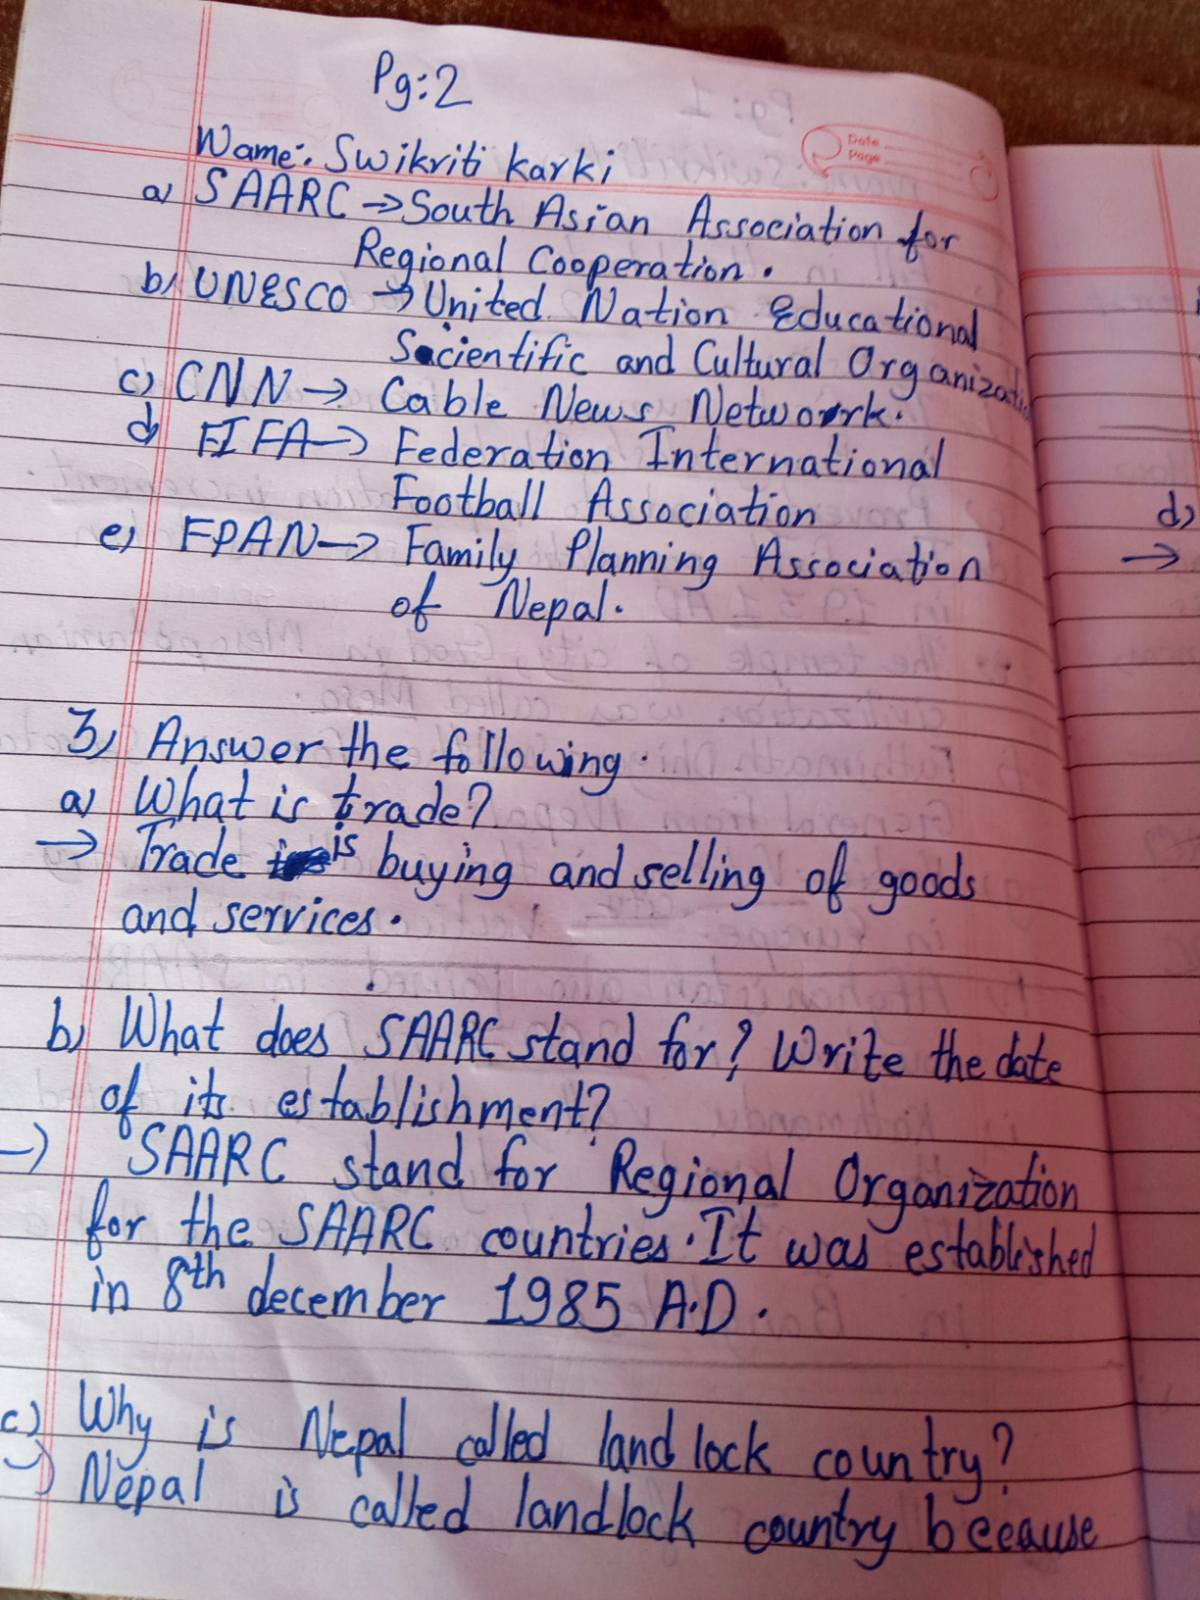 Pg:2
Date
Page
Name: Swikriti Karki
a) SAARC → South Asian Association for
Regional Cooperation.
b) UNESCO → United Nation Educational
Scientific and Cultural Organization
c) CNN → Cable News Network.
d) FIFA → Federation International
Football Association
e) FPAN → Family Planning Association
of Nepal.
3) Answer the following.
a) What is trade?
→ Trade is buying and selling of goods
and services.
b) What does SAARC stand for? Write the date
of its establishment?
→ SAARC stand for Regional Organization
for the SAARC countries. It was established
in 8th december 1985 A.D.
c) Why is Nepal called land lock country?
→ Nepal is called landlock country because
d)
→